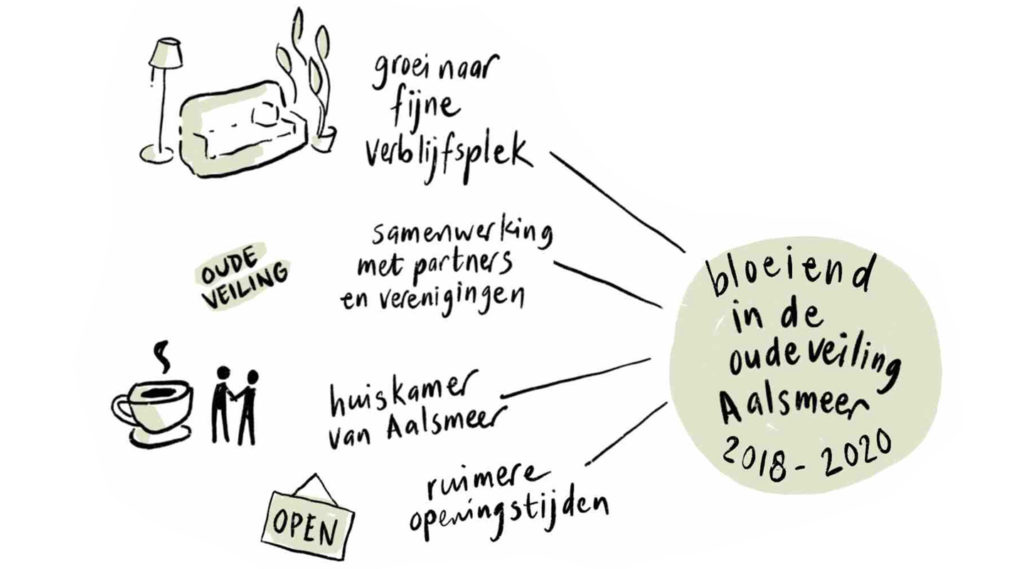 groei naar
fijne
verblijfsplek
OUDE
VEILING
samenwerking
met partners
en verenigingen
huiskamer
van Aalsmeer
OPEN
ruimere
openingstijden
bloeiend
in de
oude veiling
Aalsmeer
2018 - 2020